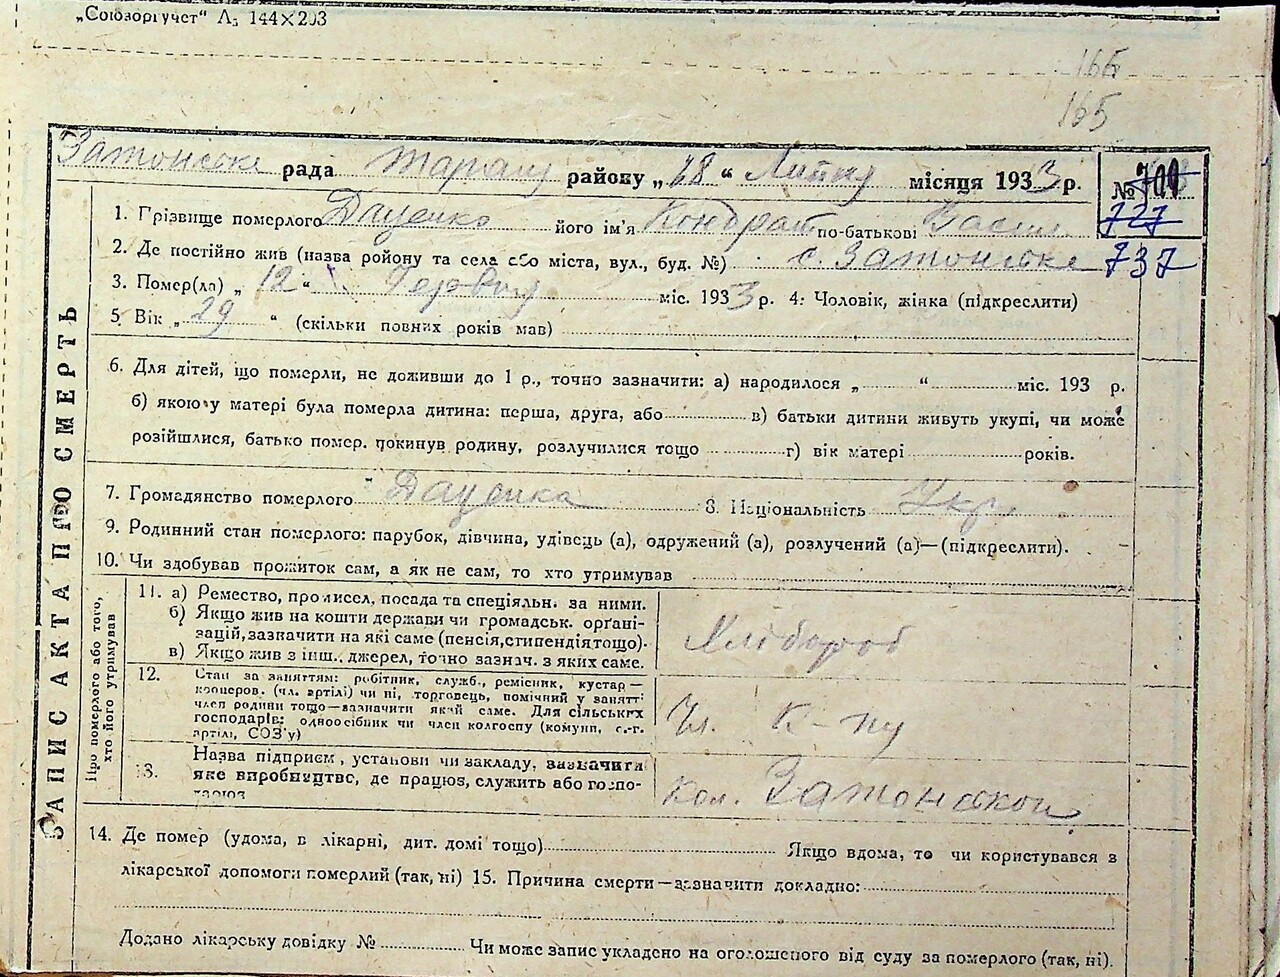 „Союзоргучет“ Лз 144×203
166
165
Затонське рада район у „28“ Липня місяця 1933 р. №
727
1. Прізвище померлого Даценко його ім'я Кондрат по-батькові Васил.
2. Де постійно жив (назва району та села або міста, вул., буд. №) с. Затонське 737
3. Помер(ла) „12“ Червня міс. 1933 р. 4. Чоловік, жінка (підкреслити)
5. Вік „29“ (скільки повних років мав)
ЗАПИС АКТА ПРО СМЕРТЬ
6. Для дітей, що померли, не доживши до 1 р., точно зазначити: а) народилося „ “ міс. 193 р.
б) якою у матері була померла дитина: перша, друга, або в) батьки дитини живуть укупі, чи може
розійшлися, батько помер, покинув родину, розлучилися тощо г) вік матері років.
7. Громадянство померлого 8. Національність Укр.
9. Родинний стан померлого: парубок, дівчина, удівець (а), одружений (а), розлучений (а)—(підкреслити).
10. Чи здобував прожиток сам, а як не сам, то хто утримував
Про померлого або того, хто його утримував
11. а) Ремество, промисел, посада та спеціяльн. за ними.
б) Якщо жив на кошти держави чи громадськ. орґані-
зацій, зазначити на які саме (пенсія, стипендія тощо).
в) Якщо жив з інш. джерел, точно зазнач. з яких саме.
Хлібороб
12. Стан за заняттям: робітник, служб., ремісник, кустар—
кооперов. (чл. артілі) чи ні, торговець, помічний у занятті
член родини тощо—зазначити який саме. Для сільських
господарів: одноосібник чи член колгоспу (комуни, с.-г.
артілі, СОЗ'у)
Чл. к-пу
13. Назва підприєм., установи чи закладу, зазначити
яке виробництво, де працює, служить або госпо-
дарює
Кол.
14. Де помер (удома, в лікарні, дит. домі тощо) Якщо вдома, то чи користувався з
лікарської допомоги померлий (так, ні) 15. Причина смерти—зазначити докладно:
Додано лікарську довідку № Чи може запис укладено на оголошеного від суду за померлого (так, ні).